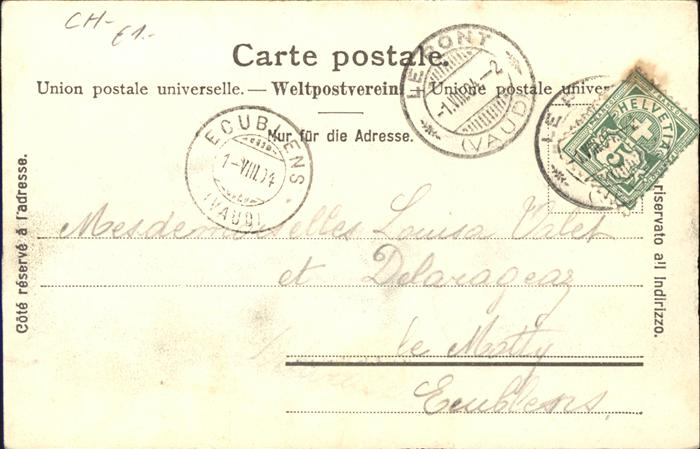 CH-
61.-
Carte postale.
Union postale universelle. — Weltpostverein. — Unione postale univer
Nur für die Adresse.
LE PONT
-1.VIII.04.-2
(VAUD)
ECUBLENS
1-VIII.04
(VAUD)
HELVETIA
5
Côté réservé à l'adresse.
riservato all Indirizzo.
Mesdemoiselles Louisa Valet
et Delarageaz
le Motty
Ecublens.